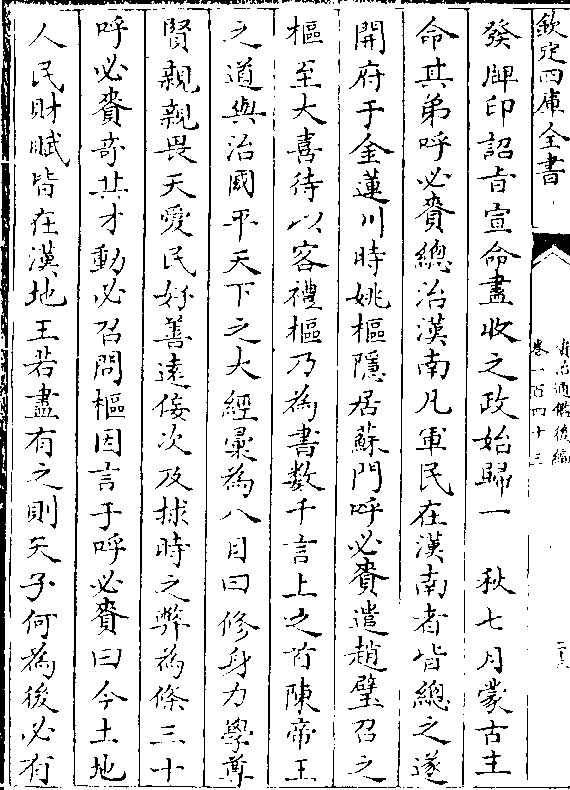 欽定四庫全書
資治通鑑後編
卷一百四十三
二十六
發牌印詔㫖宣命盡收之政始歸一　秋七月蒙古主
命其弟呼必賚總治漢南凡軍民在漢南者皆總之遂
開府于金蓮川時姚樞隱居蘇門呼必賚遣趙璧召之
樞至大喜待以客禮樞乃為書數千言上之首陳帝王
之道與治國平天下之大經彙為八目曰修身力學尊
賢親親畏天愛民好善遠佞次及捄時之弊為條三十
呼必賚奇其才動必召問樞因言于呼必賚曰今土地
人民財賦皆在漢地王若盡有之則天子何為後必有